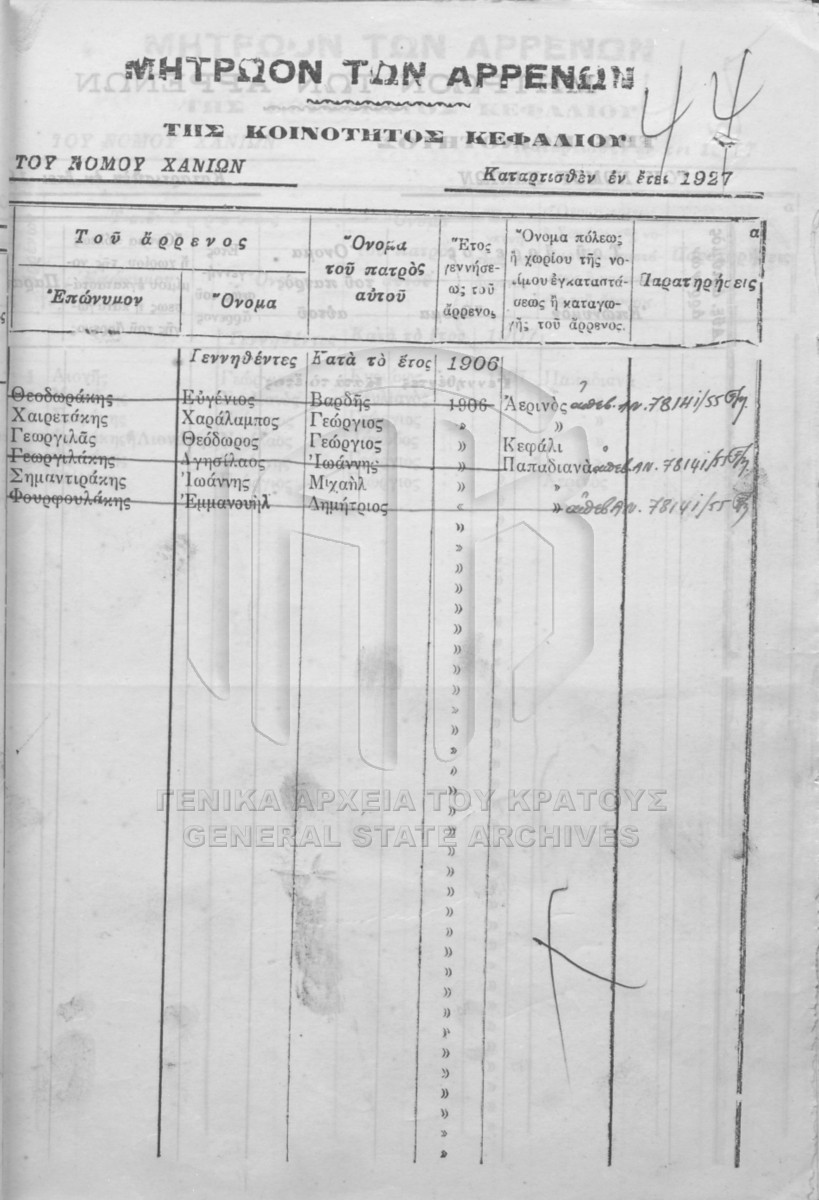 ΜΗΤΡΩΟΝ ΤΩΝ ΑΡΡΕΝΩΝ
44
ΤΗΣ ΚΟΙΝΟΤΗΤΟΣ ΚΕΦΑΛΙΟΥ
ΤΟΥ ΝΟΜΟΥ ΧΑΝΙΩΝ
Καταρτισθὲν ἐν ἔτει 1927
Τοῦ ἄρρενος
Ἐπώνυμον Ὄνομα
Ὄνομα
τοῦ πατρὸς
αὐτοῦ
Ἔτος
γεννήσε-
ως τοῦ
ἄρρενος
Ὄνομα πόλεως
ἢ χωρίου τῆς νο-
μίμου ἐγκαταστά-
σεως ἢ καταγω-
γῆς τοῦ ἄρρενος.
α
Παρατηρήσεις
Γεννηθέντες Κατὰ τὸ ἔτος 1906
Θεοδωράκης Εὐγένιος Βαρδῆς 1906 Ἀερινὸς ἀπεβ. ΑΝ. 78141/55
Χαιρετάκης Χαράλαμπος Γεώργιος » »
Γεωργιλᾶς Θεόδωρος Γεώργιος » Κεφάλι
Γεωργιλάκης Ἀγησίλαος Ἰωάννης » Παπαδιανὰ ἀπεβ ΑΝ. 78141/55
Σημαντιράκης Ἰωάννης Μιχαὴλ » »
Φουρφουλάκης Ἐμμανουὴλ Δημήτριος « » ἀπεβ ΑΝ. 78141/55
ΓΕΝΙΚΑ ΑΡΧΕΙΑ ΤΟΥ ΚΡΑΤΟΥΣ
GENERAL STATE ARCHIVES